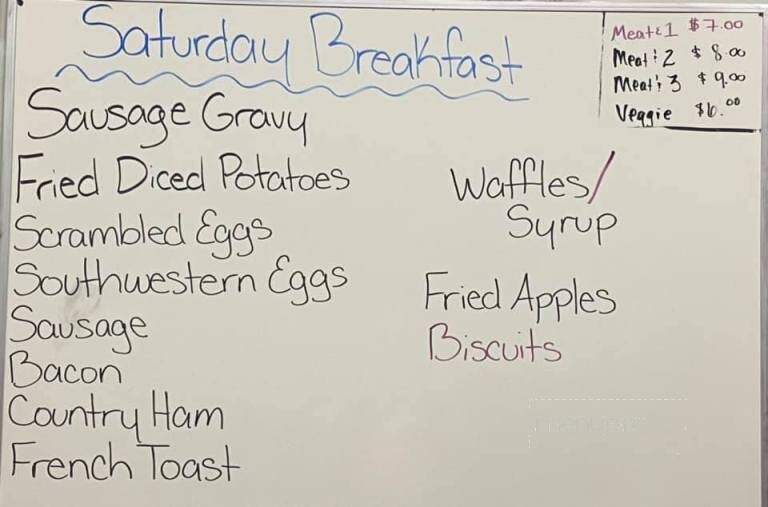 Saturday Breakfast
Meat: 1 $7.00
Meat: 2 $8.00
Meat: 3 $9.00
Veggie $6.00
Sausage Gravy
Fried Diced Potatoes
Scrambled Eggs
Southwestern Eggs
Sausage
Bacon
Country Ham
French Toast
Waffles/
Syrup
Fried Apples
Biscuits